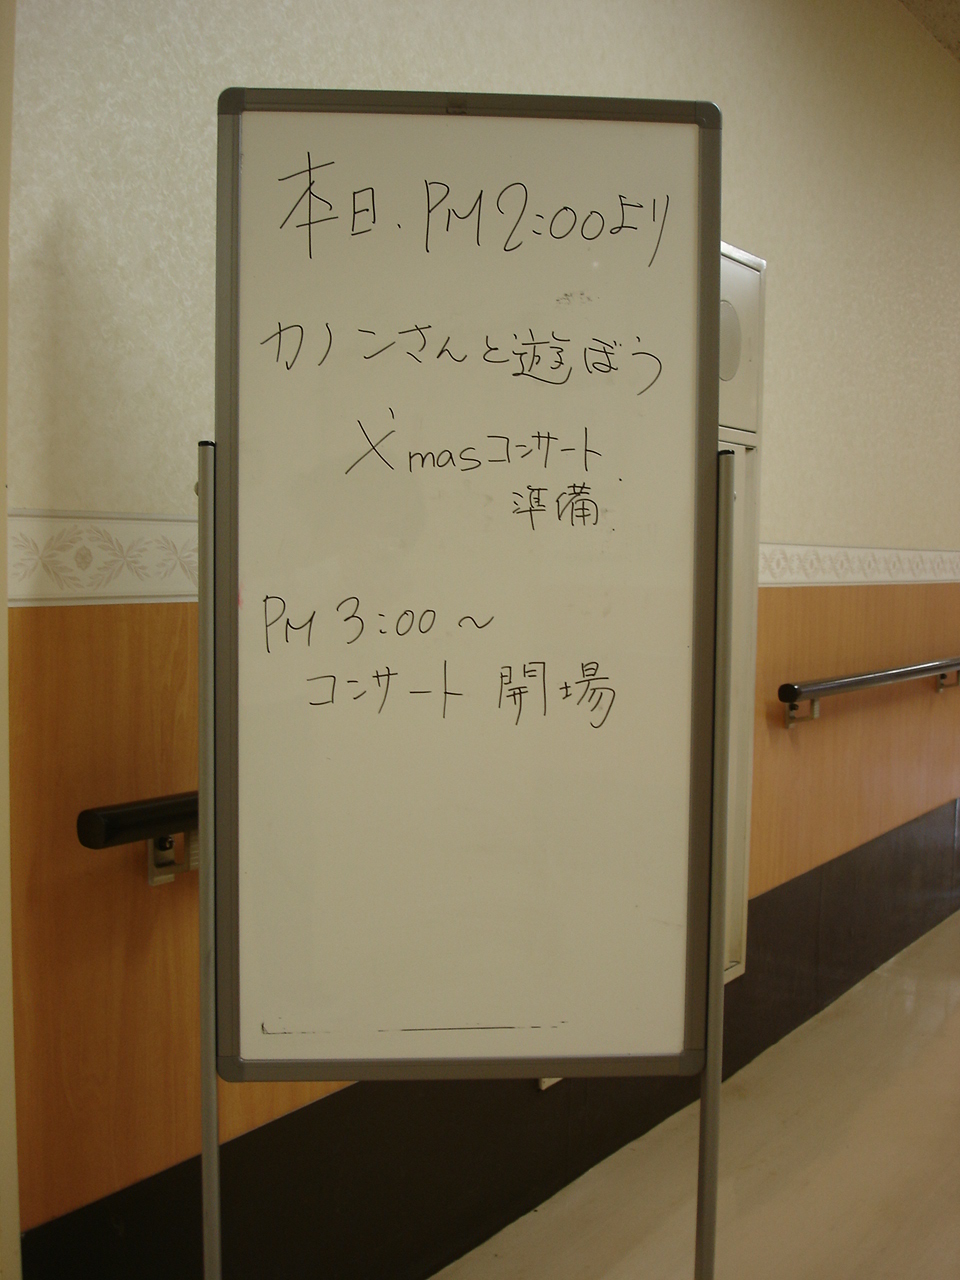 本日.PM2:00より
カノンさんと遊ぼう
X'masコンサート
準備.
PM 3:00~
コンサート 開場